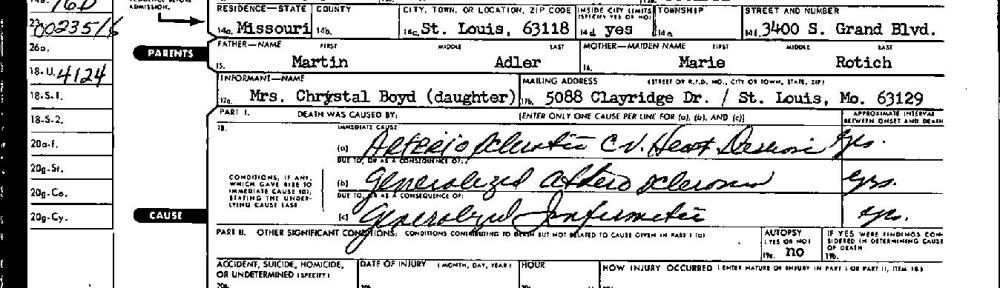 RESIDENCE—STATE COUNTY CITY, TOWN, OR LOCATION, ZIP CODE INSIDE CITY LIMITS (SPECIFY YES OR NO) TOWNSHIP STREET AND NUMBER
14a. Missouri 14b. 14c. St. Louis, 63118 14d yes 14e 14f. 3400 S. Grand Blvd.
PARENTS
FATHER—NAME FIRST MIDDLE LAST MOTHER—MAIDEN NAME FIRST MIDDLE LAST
15. Martin Adler 16. Marie Rotich
INFORMANT—NAME MAILING ADDRESS (STREET OR R.F.D. NO., CITY OR TOWN, STATE, ZIP)
17a. Mrs. Chrystal Boyd (daughter) 17b. 5088 Clayridge Dr. / St. Louis, Mo. 63129
PART I. DEATH WAS CAUSED BY: [ENTER ONLY ONE CAUSE PER LINE FOR (a), (b), AND (c)] APPROXIMATE INTERVAL BETWEEN ONSET AND DEATH
18. IMMEDIATE CAUSE
(a) Arteriosclerotic C.V. Heart Disease yrs.
DUE TO, OR AS A CONSEQUENCE OF:
CONDITIONS, IF ANY, WHICH GAVE RISE TO IMMEDIATE CAUSE (a), STATING THE UNDERLYING CAUSE LAST
(b) Generalized arteriosclerosis yrs.
DUE TO, OR AS A CONSEQUENCE OF:
CAUSE
(c) Generalized yrs.
PART II. OTHER SIGNIFICANT CONDITIONS: CONDITIONS CONTRIBUTING TO DEATH BUT NOT RELATED TO CAUSE GIVEN IN PART I (a) AUTOPSY (YES OR NO) IF YES WERE FINDINGS CONSIDERED IN DETERMINING CAUSE OF DEATH
19a. no 19b.
ACCIDENT, SUICIDE, HOMICIDE, OR UNDETERMINED (SPECIFY) DATE OF INJURY (MONTH, DAY, YEAR) HOUR HOW INJURY OCCURRED (ENTER NATURE OF INJURY IN PART I OR PART II, ITEM 18)
26a.
18-U. 4124
18-S-1.
18-S-2.
20a-f.
20g-St.
20g-Co.
20g-Cy.